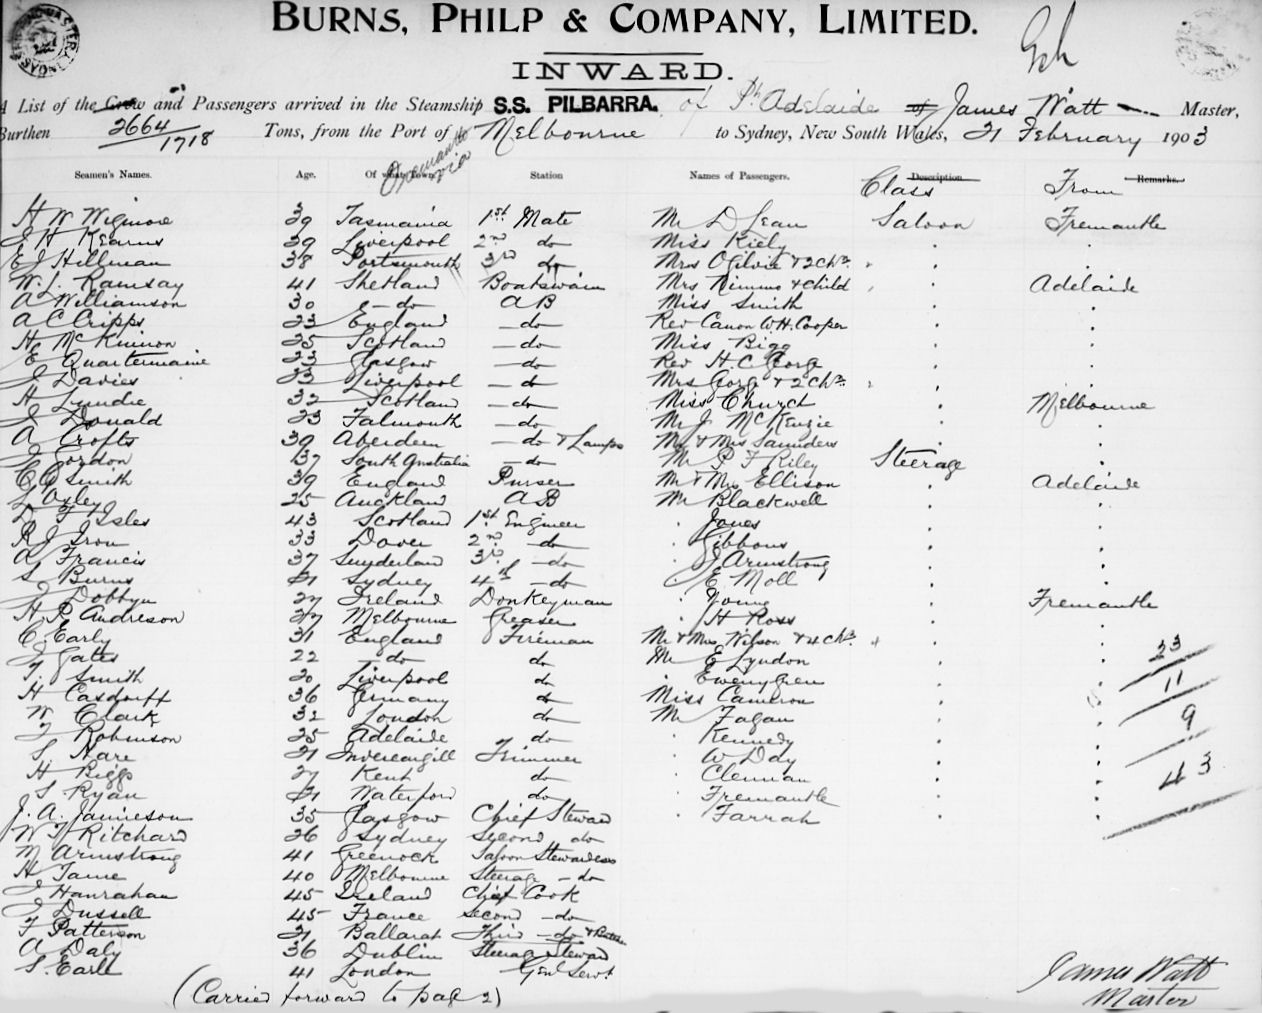 BURNS, PHILP & COMPANY, LIMITED.
INWARD.
A List of the Crew and Passengers arrived in the Steamship S.S. PILBARRA. of Pt. Adelaide of James Watt Master,
Burthen 2664 / 1718 Tons, from the Port of Melbourne to Sydney, New South Wales, 21 February 1903
Fremantle via
Seamen's Names. Age. Of what Town Station Names of Passengers. Description Class Remarks. From
H W Wigmore 39 Tasmania 1st Mate Mr D Jean Saloon Fremantle
J H Kearns 39 Liverpool 2nd do Miss Kiely
E J Hillman 38 Portsmouth 3rd do Mrs Ogilvie & 2 Chn.
W. J. Ramsay 41 Shetland Boatswain Mrs Nimmo & Child Adelaide
A Williamson 30 do A B Miss Smith
A C Cripps 23 England do Rev Canon W.H. Cooper
H McKinnon 25 Scotland do Miss Bigg
E Quartermaine 23 Glasgow do Rev H. C. George
J Davies 33 Liverpool do Mrs George & 2 Chn.
H Lundie 32 Scotland do Miss Church Melbourne
J Donald 23 Falmouth do Mr J. McKenzie
A Crofts 39 Aberdeen do & Lamps Mr & Mrs Saunders
J Gordon 37 South Australia do Mr P F Riley Steerage
C A Smith 39 England Purser Mr & Mrs Ellison Adelaide
L Oxley 25 Auckland A B Mr Blackwell
D F Isles 43 Scotland 1st Engineer Jones
R J Iron 33 Dover 2nd do Gibbons
A Francis 37 Sunderland 3rd do J Armstrong
S Burns 21 Sydney 4th do E Moll
J Dobbyn 27 Ireland Donkeyman Young Fremantle
H. R Andreson 27 Melbourne Greaser H Ross
C. Early 31 England Fireman Mr & Mrs Wilson & 4 Chn.
J Gates 22 do do Mr E Lyndon 23
T. Smith 20 Liverpool do
H Casdorff 36 Germany do Miss Cameron 11
W Clark 32 London do Mr Fagan
J Robinson 25 Adelaide do Kennedy 9
S Hare 21 Invercargill Trimmer W Day
H Biggs 27 Kent do Clennan 43
S Ryan 21 Waterford do Fremantle
J. A. Jamieson 35 Glasgow Chief Steward Farrah
W T Ritchard 26 Sydney Second do
M Armstrong 41 Greenock Saloon Stewardess
H Tame 40 Melbourne Steerage do
J Hanrahan 45 Ireland Chief Cook
J Dussell 45 France second do
F Patterson 21 Ballarat Third do & Butcher
A Daly 36 Dublin Steerage Steward
S. Earle 41 London Genl Servt
(Carried forward to page 2)
James Watt
Master